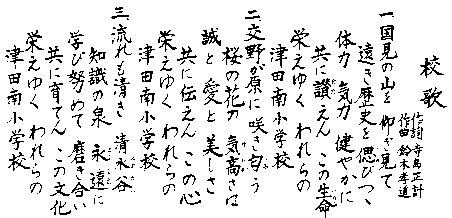 校歌
作詞 寺島正計
作曲 鈴木孝道
一 国見の山を 仰ぎ見て
遠き歴史を 偲びつゝ
体力 気力 健やかに
共に讃えん この生命
栄えゆく われらの
津田南小学校
二 交野が原に 咲き匂う
桜の花の 気高さは
誠と愛と 美しさ
共に伝えん この心
栄えゆく われらの
津田南小学校
三 流れも清き 清水谷
知識の泉 永遠に
学び努めて 磨き合い
共に育てん この文化
栄えゆく われらの
津田南小学校